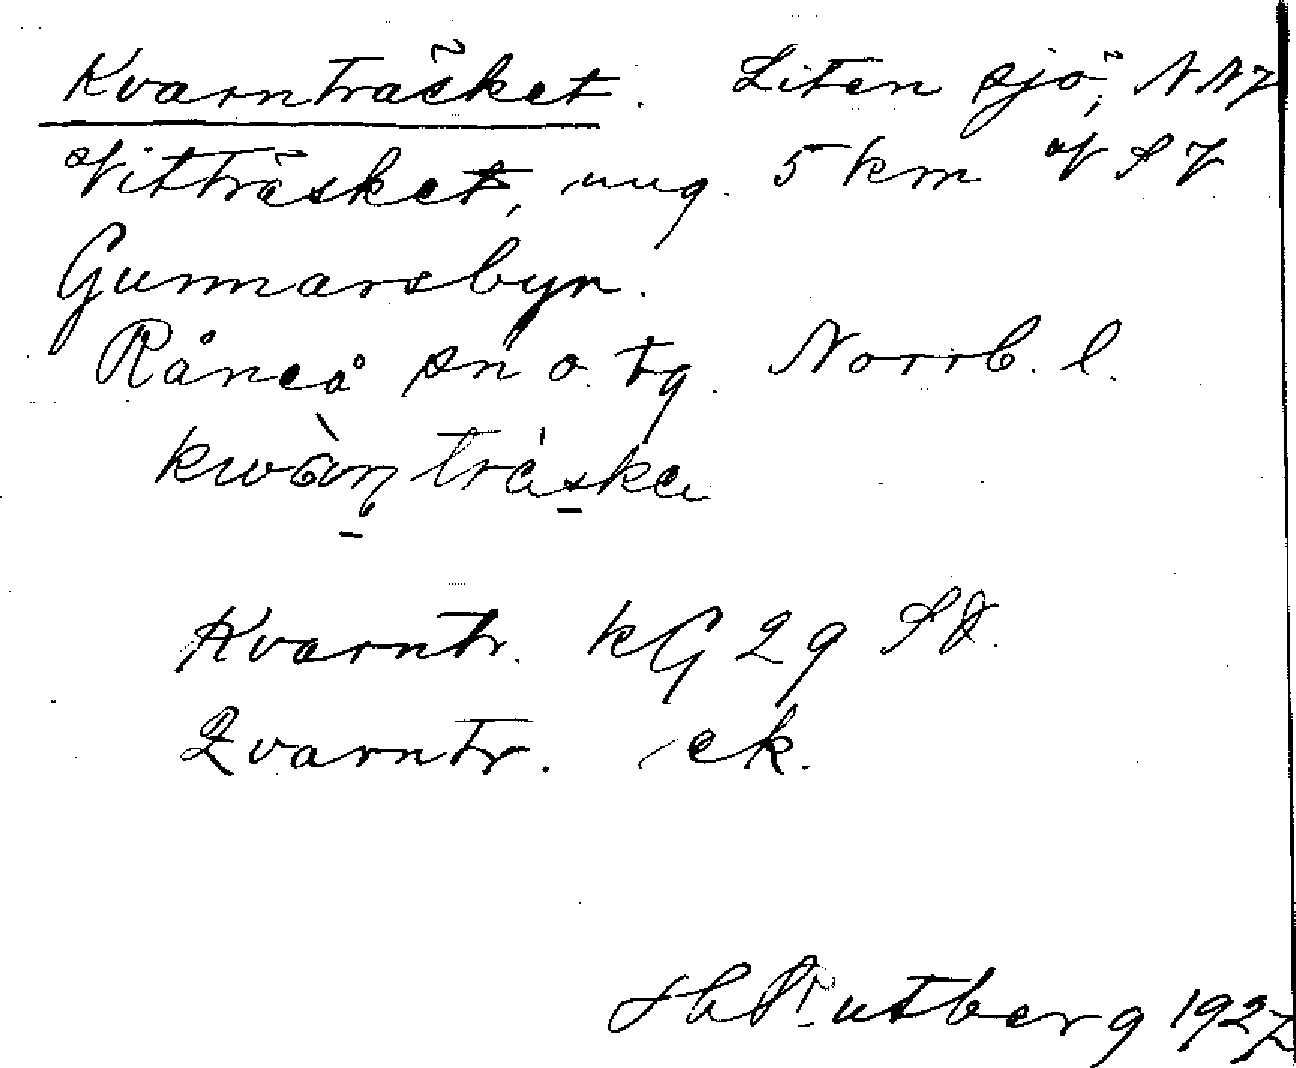 Kvarnträsket. Liten sjö, NNV
Vitträsket, ung. 5 km V SV
Gunnarsbyn.
Råneå sn o. tg. Norrb. l.
kwàn träska
Kvarntr. KG 29 SV.
Qvarntr. ek.
H Rutberg 1927